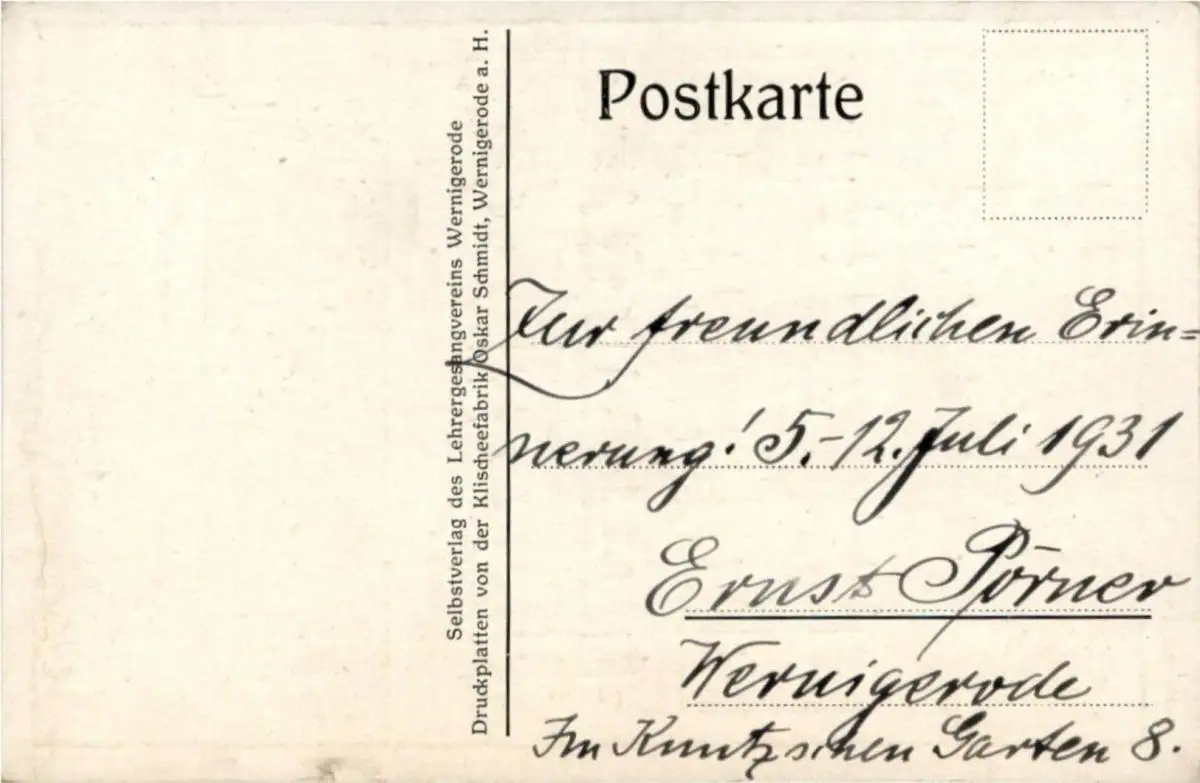 Postkarte
Selbstverlag des Lehrergesangvereins Wernigerode
Druckplatten von der Klischeefabrik Oskar Schmidt, Wernigerode a. H.
Zur freundlichen Erin=
nerung! 5.-12. Juli 1931
Ernst Pörner
Wernigerode
Im Kuntzschen Garten 8.